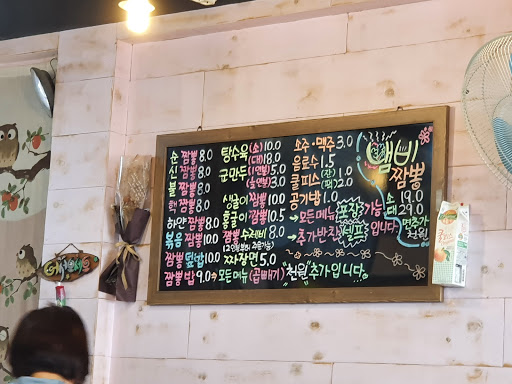 순 짬뽕 8.0
신 짬뽕 8.0
불 짬뽕 8.0
핵 짬뽕 8.0
하얀 짬뽕 8.0
볶음 짬뽕 10.0
짬뽕 덮밥 10.0
짬뽕 밥 9.0
탕수육 (소) 10.0
(대) 18.0
군만두 5.0
생굴이 짬뽕 10.0
홍굴이 짬뽕 10.5
짬뽕 수제비 8.0
짜장면 5.0
→ 모든메뉴 (곱빼기) "천원" 추가입니다.
소주·맥주 3.0
음료수 1.5
쿨피스 (잔) 1.0
2.0
공기밥 1.0
→ 모든메뉴 포장가능
→ 추가반찬 셀프입니다
짬뽕
소 19.0
대 29.0
천원